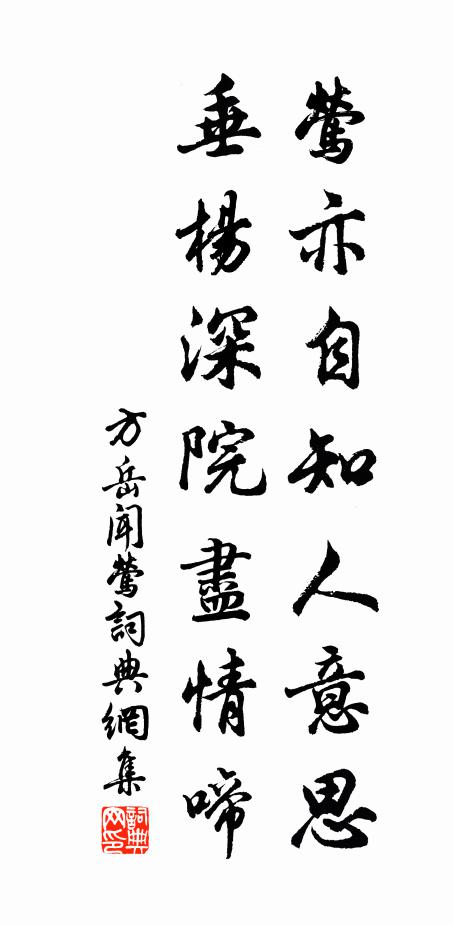 鶯亦自知人意思
垂楊深院盡情啼
方岳聞鶯詞典網集
詞典
网印